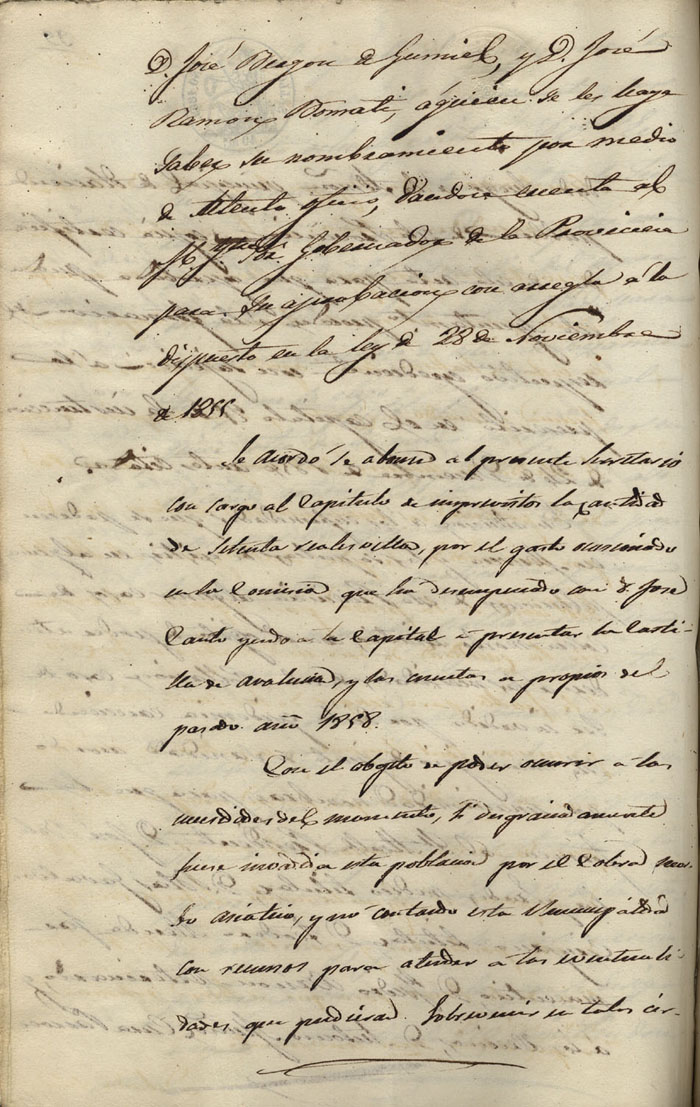 D. José Bergon de Gumiel, y D. José
Ramon Bomati, aquien se les haga
saber su nombramiento por medio
de atento oficio, dandose cuenta al
M. Y. Sr. Gobernador de la Provincia
para su aprobacion con arreglo á lo
dispuesto en la ley de 28 de Noviembre
de 1855
Se acordó se abone al presente Secretario
con cargo al Capitulo de imprevistos la cantidad
de setenta reales vellon, por el gasto ocasionado
en la Comision que ha desempeñado con D. José
Canto yendo a la Capital a presentar la Carti-
lla de avaluos, y las cuentas de propios del
pasado año 1858.
Con el objeto de poder ocurrir a las
necesidades del momento, si desgraciadamente
fuese invadida esta poblacion por el Colera mor-
bo asiatico, y no contando esta Municipalidad
con recursos para atender a las eventuali-
dades que pudieran sobrevenir en tales cir-